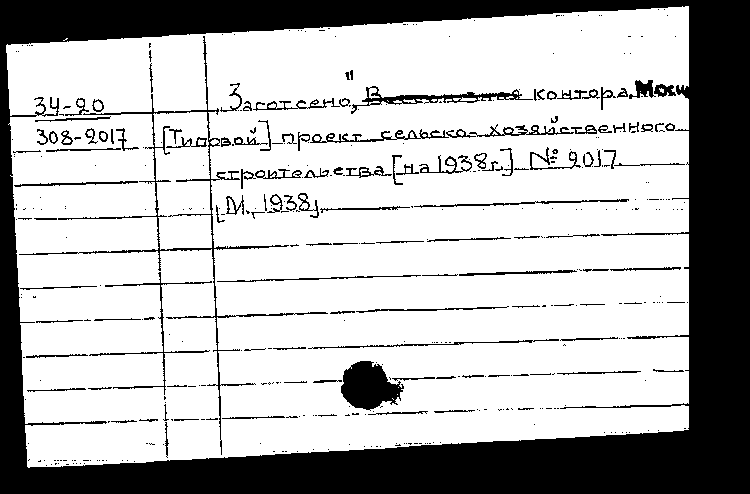 34-20 „Заготсено," контора,
308-2017 [Типовой] проект сельско-хозяйственного
строительства [на 1938г.] № 2017.
[М., 1938].